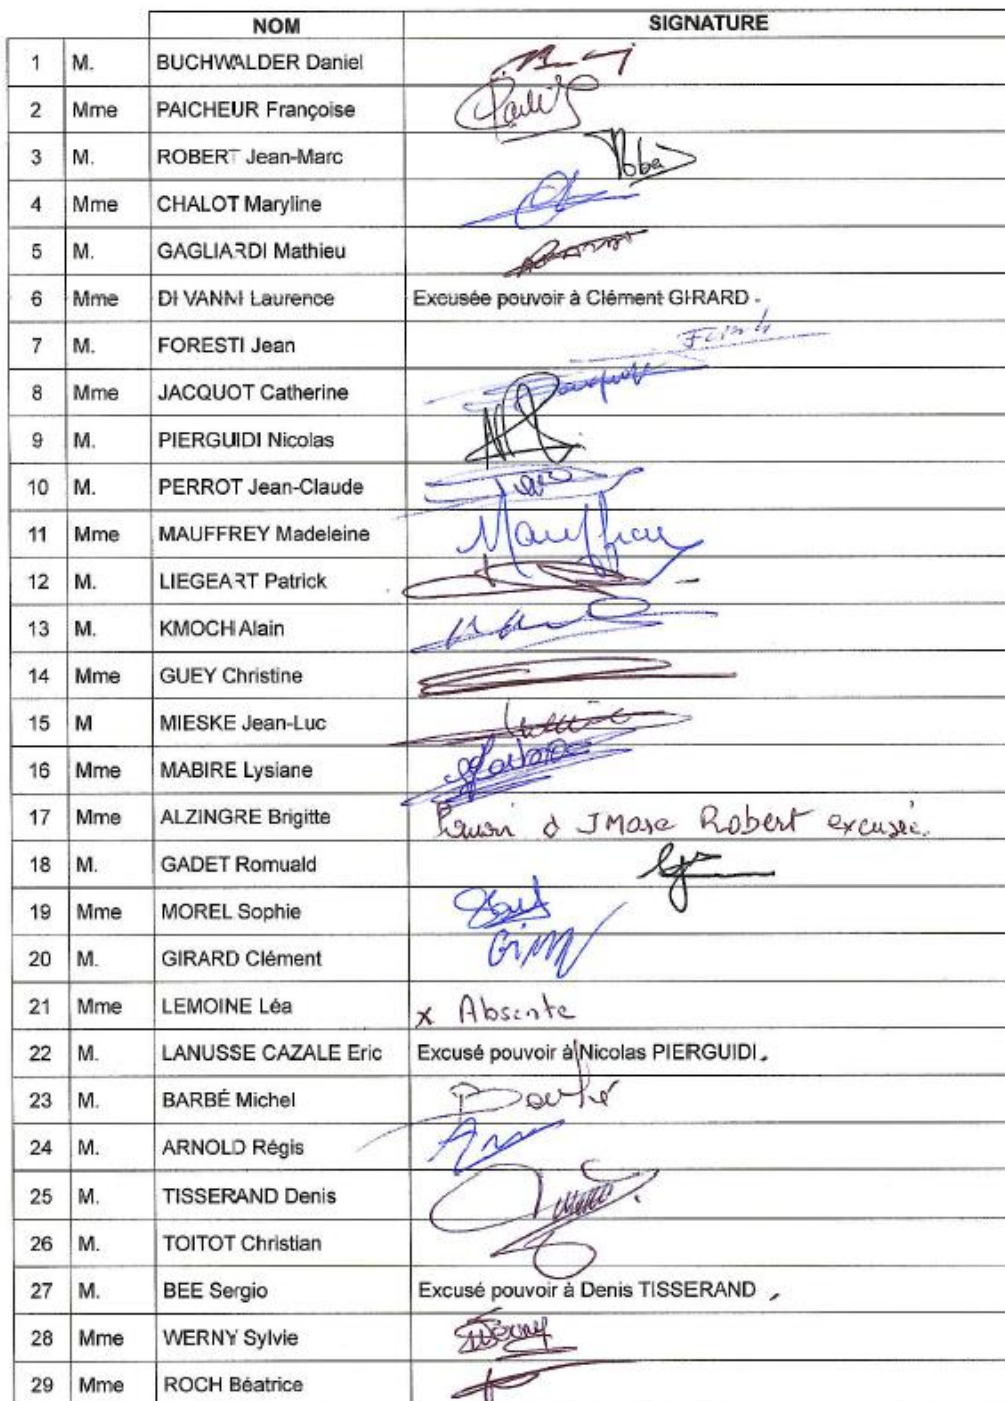 NOM SIGNATURE
1 M. BUCHWALDER Daniel
2 Mme PAICHEUR Françoise
3 M. ROBERT Jean-Marc
4 Mme CHALOT Maryline
5 M. GAGLIARDI Mathieu
6 Mme DI VANNI Laurence Excusée pouvoir à Clément GIRARD.
7 M. FORESTI Jean
8 Mme JACQUOT Catherine
9 M. PIERGUIDI Nicolas
10 M. PERROT Jean-Claude
11 Mme MAUFFREY Madeleine Mauffrey
12 M. LIEGEART Patrick
13 M. KMOCH Alain
14 Mme GUEY Christine
15 M MIESKE Jean-Luc
16 Mme MABIRE Lysiane
17 Mme ALZINGRE Brigitte JMarc Robert excusée.
18 M. GADET Romuald
19 Mme MOREL Sophie
20 M. GIRARD Clément
21 Mme LEMOINE Léa x Absente
22 M. LANUSSE CAZALE Eric Excusé pouvoir à Nicolas PIERGUIDI.
23 M. BARBÉ Michel Barbé
24 M. ARNOLD Régis
25 M. TISSERAND Denis
26 M. TOITOT Christian
27 M. BEE Sergio Excusé pouvoir à Denis TISSERAND
28 Mme WERNY Sylvie
29 Mme ROCH Béatrice